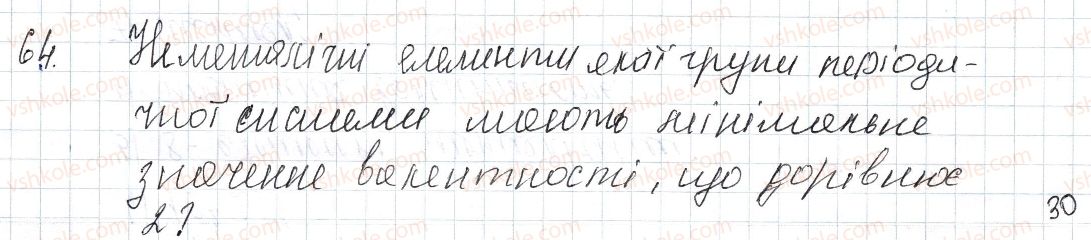 64. Неметалічні елементи якої групи періоди-
чної системи мають мінімальне
значення валентності, що дорівнює
2?
30